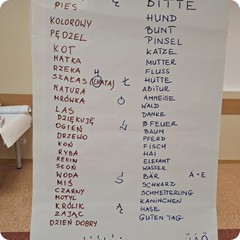 Ę BITTE
PIES HUND
KOLOROWY BUNT
PĘDZEL PINSEL
KOT KATZE
MATKA MUTTER
RZEKA FLUSS
SZAŁAS (CHATA) HÜTTE
MATURA ABITUR
MRÓWKA AMMEISE
LAS WALD
DZIĘKUJĘ DANKE
OGIEŃ FEUER
DRZEWO BAUM
KOŃ PFERD
RYBA FISCH
REKIN HAI
SŁOŃ ELEFANT
WODA WASSER
MIŚ BÄR
CZARNY SCHWARZ
MOTYL SCHMETTERLING
KRÓLIK KANINCHEN
ZAJĄC HASE
DZIEŃ DOBRY GUTEN TAG
Ł
Ó
Ś
Ą
Ä